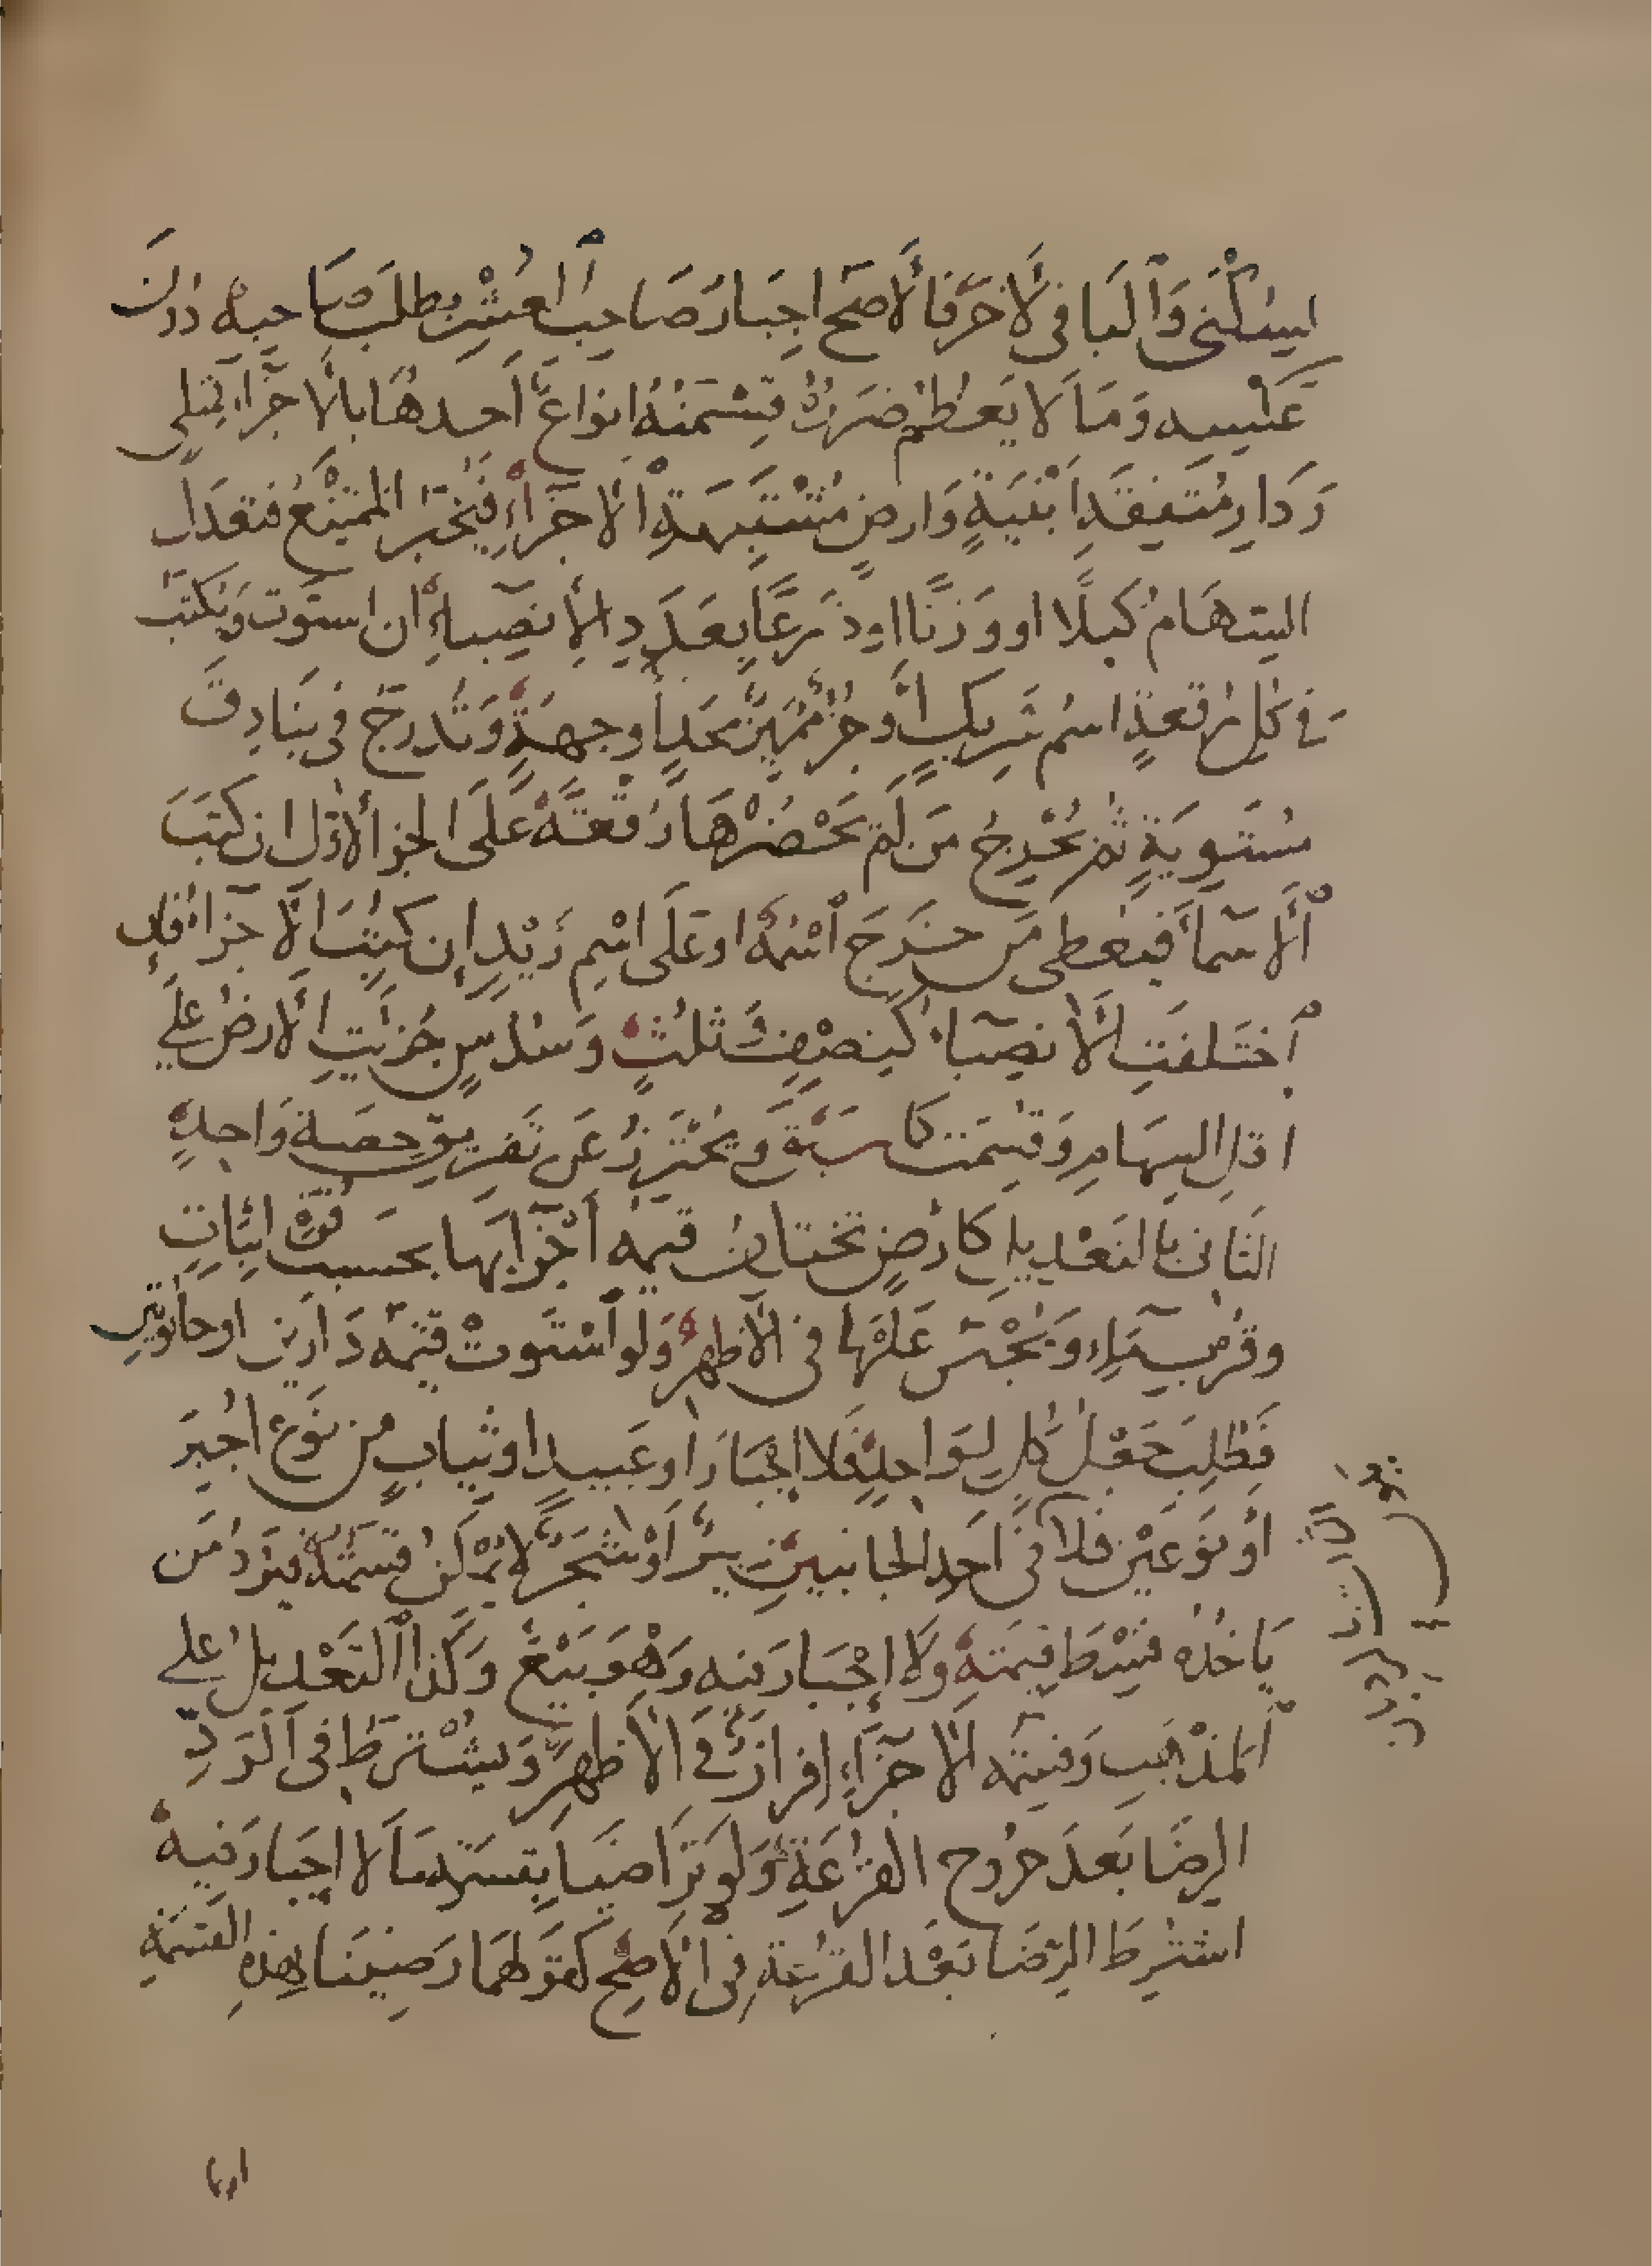 للسُّكْنَى وَٱلْبَاقِى لِآخَرَ فَالْأَصَحُّ اجْبَارُ صَاحِبِ ٱلعُشْرِ بِطَلَبِ صَاحِبِهِ دُونَ
عَكْسِهِ وَمَا لَا يَعْظُمُ ضَرَرُهُ قِسْمَتُهُ انْوَاعٌ أَحَدُهَا بِالْأَجْزَآءِ كَمِثْلِى
وَدَارٍ مُتَّفِقَةِ أَبْنِيَةٍ وَارْضٍ مُشْتَبِهَةِ الْأَجْزَآءِ فَيُجْبَرُ الْمُمْتَنِعُ فَتُعَدَّلُ
السِّهَامُ كَيْلًا اووَزْنًا اوذَرْعًا بِعَدَدِ الْأَنْصِبَآءِ ان اسْتَوَت وَيُكْتَبُ
فى كُلِّ رُقْعَةٍ اسْمُ شَرِيكٍ أَوجُزْءٌ مُمَيَّزٌ بِحَدٍّ أَوجِهَةٍ وَتُدْرَجُ فى بَنَادِقَ
مُسْتَوِيَةٍ ثُمَّ يُخْرِجُ مَن لَمْ يَحْضُرْهَا رُقْعَةً عَلَى الجُزْءِ الْأَوَّلِ ان كَتَبَ
ٱلْأَسْمَآءَ فَيُعْطَى مَن خَرَجَ ٱسْمُهُ اوعَلَى اسْمِ زَيْدٍ إِن كَتَبَ الْأَجْزَآءَ فَإِنِ
ٱخْتَلَفَتِ الْأَنْصِبَآءُ كَنِصْفٍ وَثُلُثٍ وَسُدُسٍ جُزِّئَتِ الْأَرْضُ عَلَى
اقَلِّ السِّهَامِ وَقُسِمَت كَمَا سَبَقَ وَيُحْتَرَزُ عَن تَفْرِيقِ حِصَّةِ وَاحِدٍ
الثَّانى بِالتَّعْدِيلِ كَارْضٍ تَخْتَلِفُ قِيمَةُ أَجْزَآئِهَا بِحَسَبِ قُوَّةِ انْبَاتٍ
وقُرْبِ مَآءٍ وَيُجْبَرُ عَلَيْهَا فى الْأَظْهَرِ وَلَو ٱسْتَوَتْ قِيمَةُ دَارَيْنِ اوحَانُوتَيْنِ
فَطُلِبَ جَعْلُ كُلٍّ لِوَاحِدٍ فَلَا إِجْبَارَ اوعَبِيدٍ اوثِيَابٍ مِن نَوْعٍ اُجْبِرَ
أَونَوْعَيْنِ فَلَا فى أَحَدِ الْجَانِبَيْنِ بِئْرٌ أَوْشَجَرٌ لَا يُمْكِنُ قِسْمَتُهُ فَيَرُدُّ مَن
يَاخُذُهُ قِسْطَ قِيمَتِهِ وَلَا إِجْبَارَ فِيهِ وَهْوَ بَيْعٌ وَكَذَا ٱلتَّعْدِيلُ عَلَى
ٱلْمَذْهَبِ وَقِسْمَةُ الْأَجْزَآءِ إِفْرَازٌ فى الْأَظْهَرِ وَيُشْتَرَطُ فِى ٱلرَّدِّ
الرِّضَا بَعْدَ خُرُوجِ الْقُرْعَةِ وَلَو تَرَاضَيَا بِقِسْمَةِ مَا لَا إِجْبَارَ فِيهِ
اشْتُرِطَ الرِّضَا بَعْدَ الْقُرْعَةِ فى الْأَصَحِّ كَقَوْلِهِمَا رَضِينَا بِهَذِهِ الْقِسْمَةِ